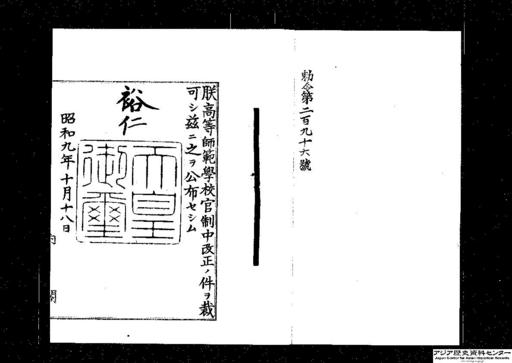 勅令第二百九十六號
朕高等師範學校官制中改正ノ件ヲ裁
可シ茲ニ之ヲ公布セシム
裕仁
天皇御璽
昭和九年十月十八日
内閣
アジア歴史資料センター
Japan Center for Asian Historical Records